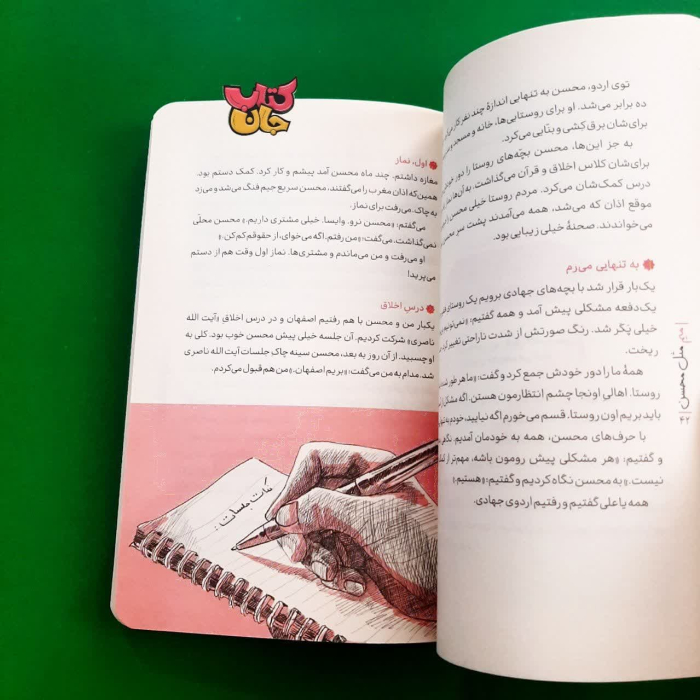 توی اردو، محسن به تنهایی اندازهٔ چند نفر کار
ده برابر می‌شد. او برای روستایی‌ها، خانه و مسجد و
برای‌شان برق‌کشی و بنّایی می‌کرد.
به جز این‌ها، محسن بچّه‌های روستا را دور خودش
برای‌شان کلاس اخلاق و قرآن می‌گذاشت، به آن‌ها
درس کمک‌شان می‌کرد. مردم روستا خیلی محسن را
موقع اذان که می‌شد، همه می‌آمدند پشت سر محسن
می‌خواندند. صحنهٔ خیلی زیبایی بود.
به تنهایی می‌رم
یک‌بار قرار شد با بچه‌های جهادی برویم یک روستای
یک‌دفعه مشکلی پیش آمد و همه گفتیم: «نمی‌تونیم
خیلی پَکَر شد. رنگ صورتش از شدت ناراحتی تغییر
ریخت.
همهٔ ما را دور خودش جمع کرد و گفت: «ما هر طور شده
روستا. اهالی اونجا چشم انتظارمون هستن. اگه مشکل
باید بریم اون روستا. قسم می‌خورم اگه نیایید، خودم به تنهایی
با حرف‌های محسن، همه به خودمان آمدیم. نگاهی
و گفتیم: «هر مشکلی پیش رومون باشه، مهم‌تر از
نیست.» به محسن نگاه کردیم و گفتیم: «هستیم.»
همه یاعلی گفتیم و رفتیم اردوی جهادی.
میم مثل محسن
۴۲
کتاب
جان
اول، نماز
مغازه داشتم. چند ماه محسن آمد پیشم و کار کرد. کمک دستم بود.
همین‌که اذان مغرب را می‌گفتند، محسن سریع جیم فنگ می‌شد و می‌زد
به چاک. می‌رفت برای نماز.
می‌گفتم: «محسن نرو. وایسا. خیلی مشتری داریم.» محسن محلّی
نمی‌گذاشت. می‌گفت: «من رفتم. اگه می‌خوای، از حقوقم کم کن.»
او می‌رفت و من می‌ماندم و مشتری‌ها. نماز اول وقت هم از دستم
می‌پرید!
درس اخلاق
یکبار من و محسن با هم رفتیم اصفهان و در درس اخلاق «آیت الله
ناصری» شرکت کردیم. آن جلسه خیلی پیش محسن خوب بود. کلی به
او چسبید. از آن روز به بعد، محسن سینه چاک جلسات آیت الله ناصری
شد. مدام به من می‌گفت: «بریم اصفهان.» من هم قبول می‌کردم.
نکات جلسات: